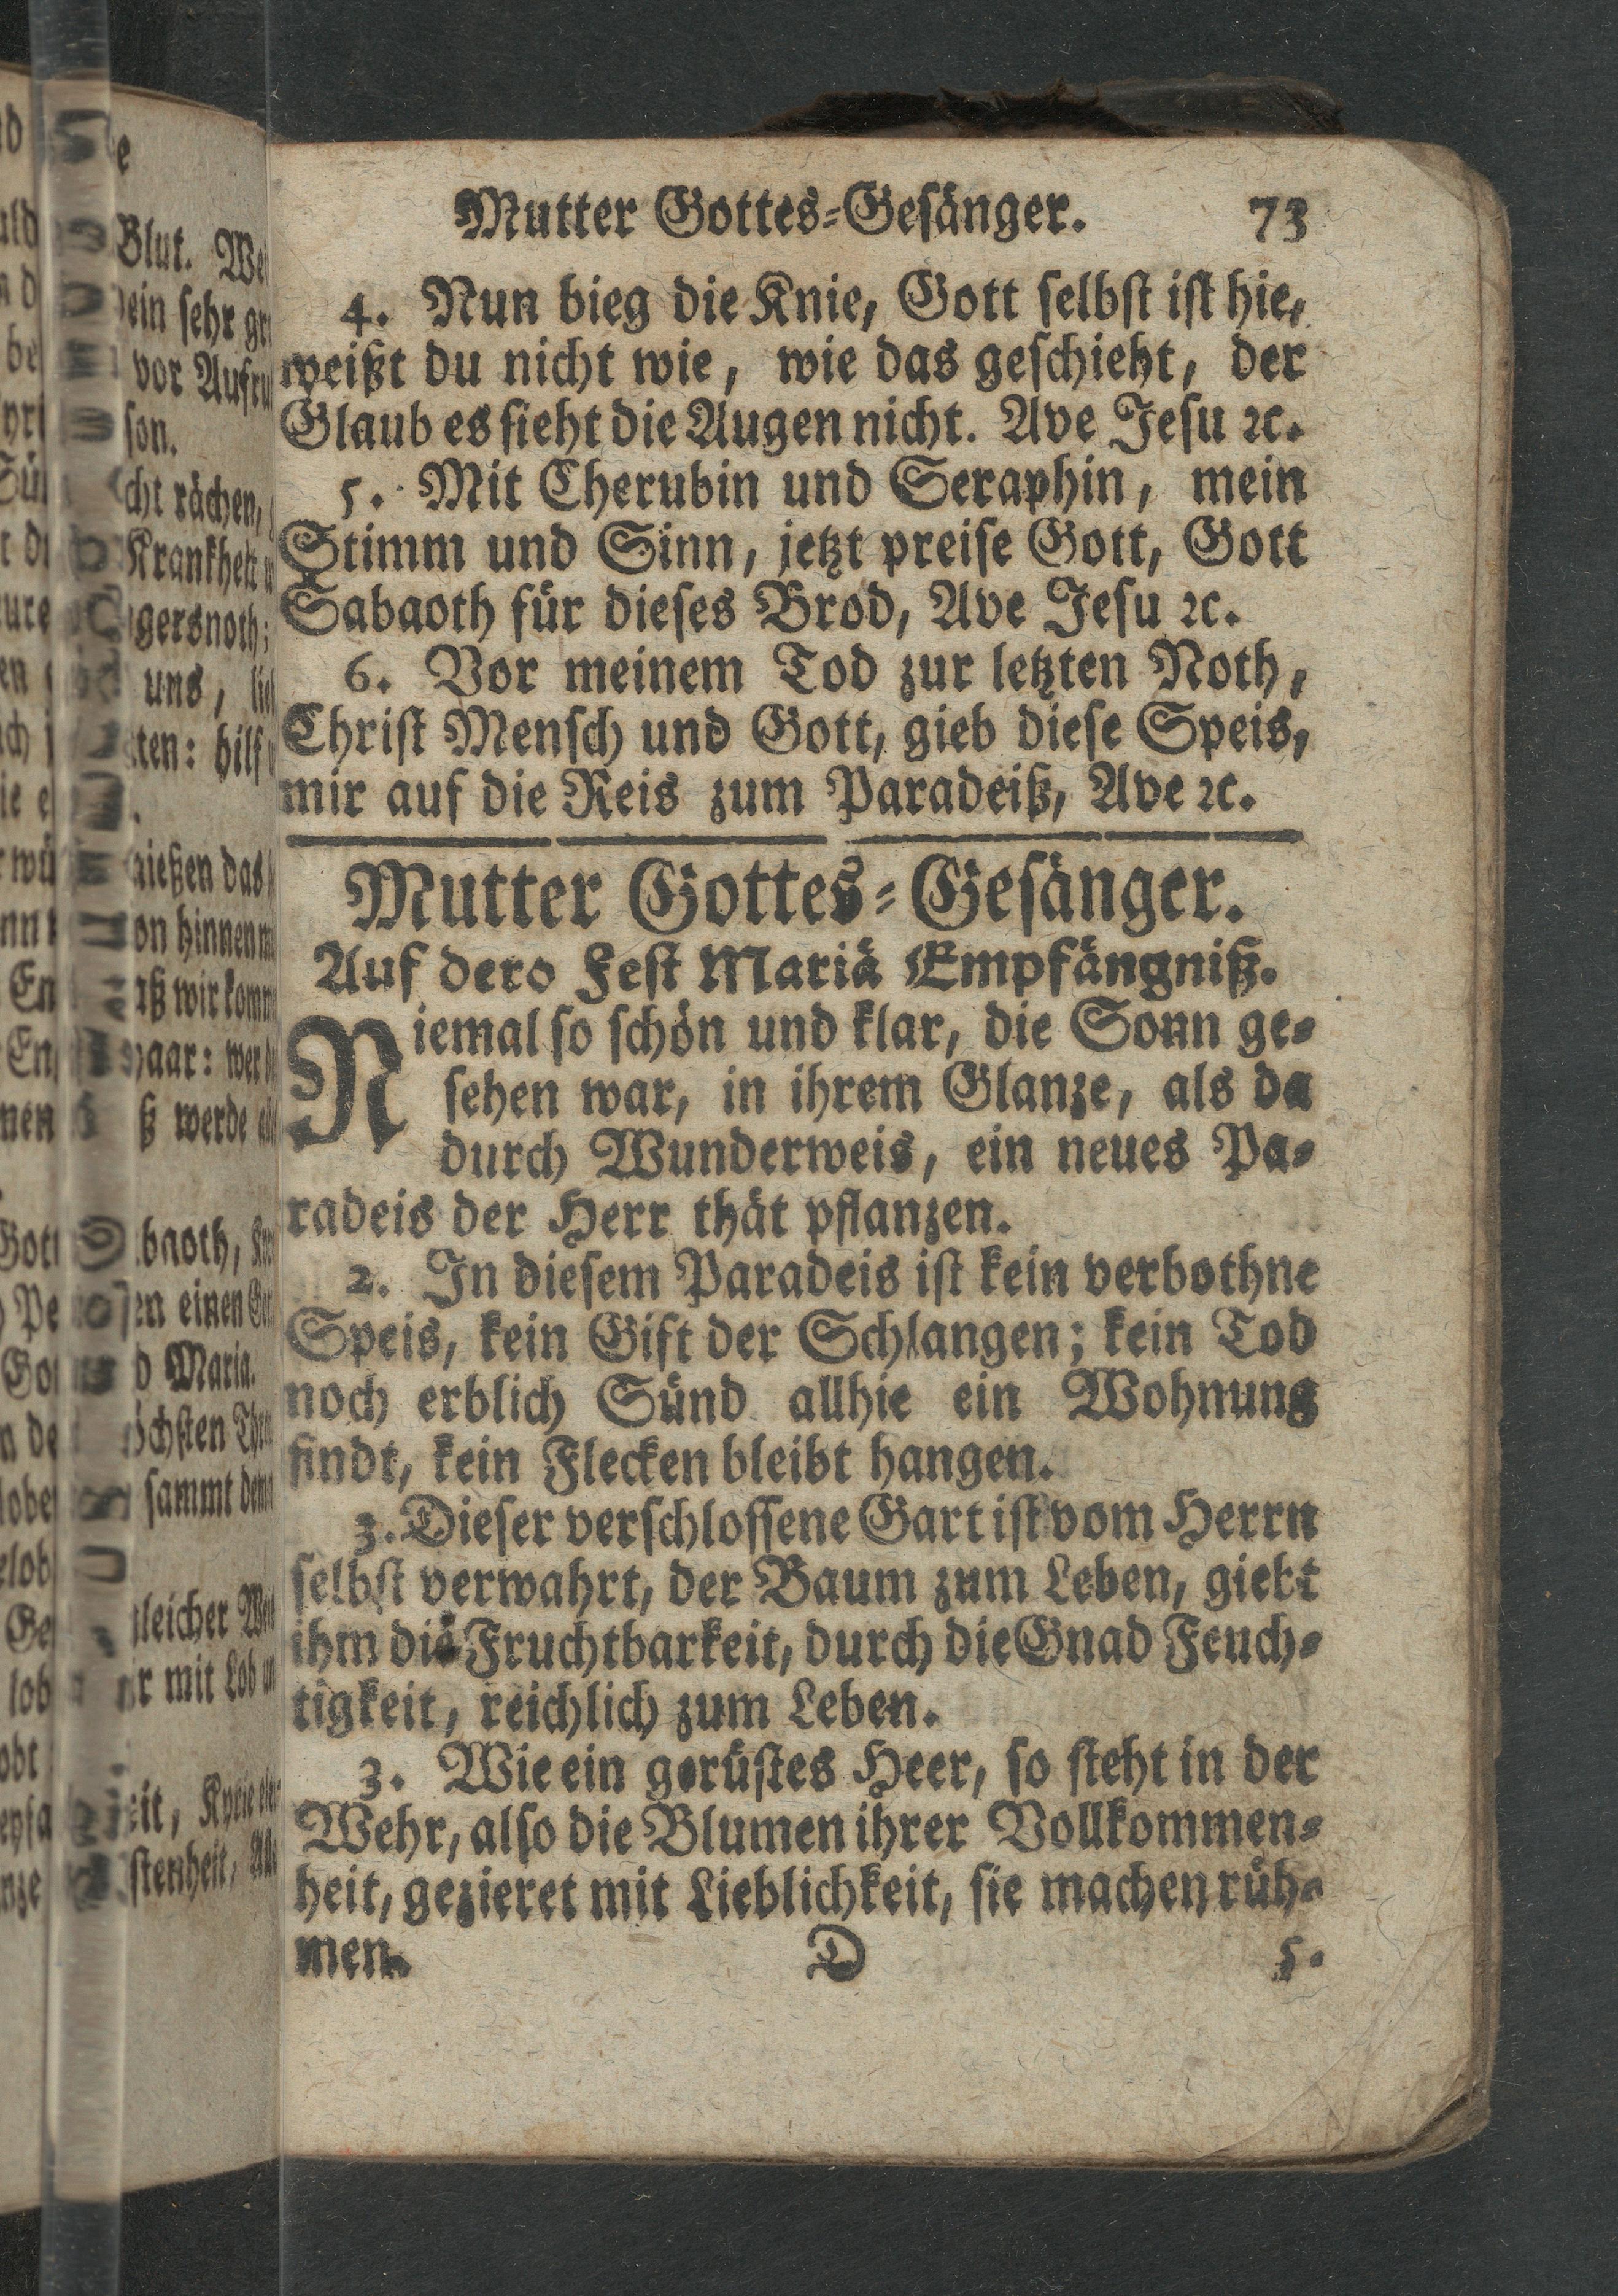 Mutter Gottes-Gesänger. 73
4. Nun bieg die Knie, Gott selbst ist hie,
weißt du nicht wie, wie das geschieht, der
Glaub es sieht die Augen nicht. Ave Jesu ꝛc.
5. Mit Cherubin und Seraphin, mein
Stimm und Sinn, jetzt preise Gott, Gott
Sabaoth für dieses Brod, Ave Jesu ꝛc.
6. Vor meinem Tod zur letzten Noth,
Christ Mensch und Gott, gieb diese Speis,
mir auf die Reis zum Paradeiß, Ave ꝛc.
Mutter Gottes-Gesänger.
Auf dero Fest Mariä Empfängniß.
Niemal so schön und klar, die Sonn ge-
sehen war, in ihrem Glanze, als da
durch Wunderweis, ein neues Pa-
radeis der Herr thät pflanzen.
2. In diesem Paradeis ist kein verbothne
Speis, kein Gift der Schlangen; kein Tod
noch erblich Sünd allhie ein Wohnung
findt, kein Flecken bleibt hangen.
3. Dieser verschlossene Gart ist vom Herrn
selbst verwahrt, der Baum zum Leben, giebt
ihm die Fruchtbarkeit, durch die Gnad Feuch-
tigkeit, reichlich zum Leben.
3. Wie ein gerüstes Heer, so steht in der
Wehr, also die Blumen ihrer Vollkommen-
heit, gezieret mit Lieblichkeit, sie machen rüh-
men. D 5.